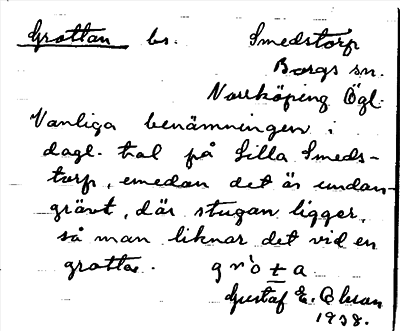 Grottan bs. Smedstorp
Borgs sn.
Norrköping Ögl.
Vanliga benämningen i
dagl. tal på Lilla Smeds-
torp, emedan det är undan-
grävt, där stugan ligger,
så man liknar det vid en
grotta.
Gustaf E. Olsson
1938.